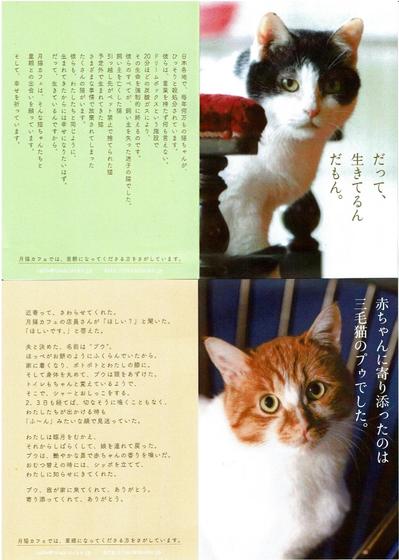 日本各地で、毎年何万もの猫ちゃんが、
ひっそりと殺処分されています。
彼らは、言葉を持たず何も言えない。
ドリームボックスという施設で
20分ほどの炭酸ガスにより、
その生命を強制的に終えるのです。
彼らのすべてが、飼い主を失った迷子の猫でした。
飼い主を亡くした猫
引っ越し先がペット禁止で捨てられた猫
予定外で生まれてきた猫
さまざまな事情で放棄されてしまった
たくさんの猫がいます。
彼らも、わたしたちと同じように、
生まれてきたからには幸せになりたいはず。
だって、生きているんですから。
月猫カフェは、そんな猫ちゃんたちと
里親との出会いを願っています。
そして、幸せを祈っています。
月猫カフェでは、里親になってくださる方をさがしています。
だって、
生きてるん
だもん。
近寄って、さわらせてくれた。
月猫カフェの店員さんが「ほしい?」と聞いた。
「ほしいです。」と答えた。
夫と決めた、名前は“プウ”。
ほっぺがお餅のようにふくらんでいたから。
家に着くなり、ポトポトとわたしの膝に。
そして身体を丸めて、プウは頭をあずけた。
トイレもちゃんと覚えているようで、
そこで、シャーとおしっこをする。
2、3日も経てば、切なそうに鳴くこともなく、
わたしたちが出かける時も
「ふ〜ん」みたいな顔で見送っていた。
わたしは臨月をむかえ、
それからしばらくして、娘を連れて戻った。
プウは、艶やかな鼻で赤ちゃんの香りを嗅いだ。
おむつ替えの時には、シッポを立てて、
わたしに知らせにきてくれた。
プウ、我が家に来てくれて、ありがとう。
寄り添ってくれて、ありがとう。
月猫カフェでは、里親になってくださる方をさがしています。
赤ちゃんに寄り添ったのは
三毛猫のプゥでした。